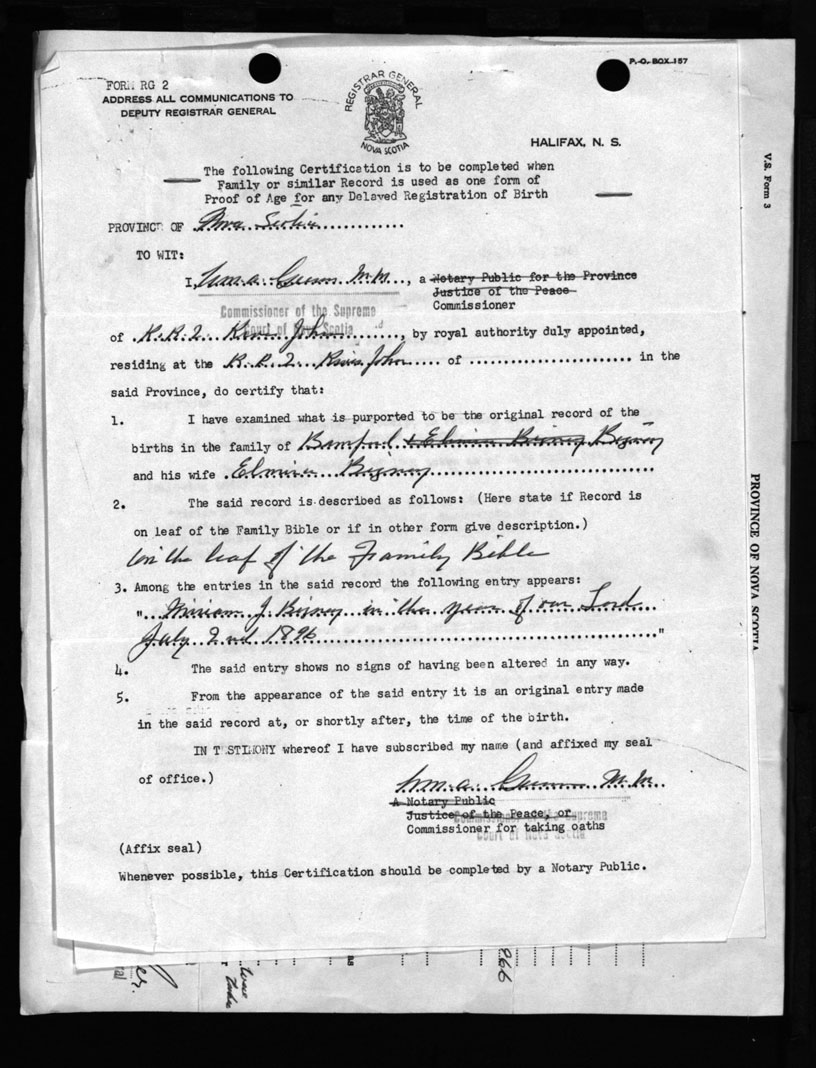 P.O. BOX 157
FORM RG 2
ADDRESS ALL COMMUNICATIONS TO
DEPUTY REGISTRAR GENERAL
REGISTRAR GENERAL
NOVA SCOTIA
HALIFAX, N. S.
V.S. Form 3
The following Certification is to be completed when
Family or similar Record is used as one form of
Proof of Age for any Delayed Registration of Birth
PROVINCE OF Nova Scotia
TO WIT:
I, M.M., a Notary Public for the Province
Justice of the Peace
Commissioner
Commissioner of the Supreme
Court of Nova Scotia
of R.R.2. River John, by royal authority duly appointed,
residing at the R.R.2. River John of in the
said Province, do certify that:
1. I have examined what is purported to be the original record of the
births in the family of Bamford & Elmira Bigney Bigney
and his wife Elmira Bigney
2. The said record is described as follows: (Here state if Record is
on leaf of the Family Bible or if in other form give description.)
on the leaf of the Family Bible
3. Among the entries in the said record the following entry appears:
" Miriam J. Bigney in the year of our Lord
July 2nd 1896 "
4. The said entry shows no signs of having been altered in any way.
5. From the appearance of the said entry it is an original entry made
in the said record at, or shortly after, the time of the birth.
IN TESTIMONY whereof I have subscribed my name (and affixed my seal
of office.)
A Notary Public
Justice of the Peace, or
Commissioner for taking oaths
Commissioner of the Supreme
Court of Nova Scotia
(Affix seal)
Whenever possible, this Certification should be completed by a Notary Public.
PROVINCE OF NOVA SCOTIA
866